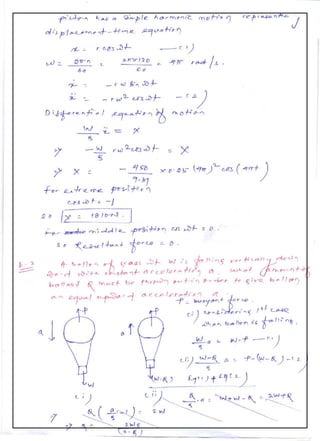 piston has a simple harmonic motion represented by
displacement-time equation
x = r cos ωt — (1)
ω = 2πn/60 = 2π×120/60 = 4π rad/s.
ẋ = -rω sin ωt
ẍ = -rω² cos ωt — (2)
Differential equation of motion
W/g ẍ = X
⇒ -W/g rω² cos ωt = X
⇒ X = - 450/9.81 x 0.25 (4π)² cos(4πt)
For extreme position
cos ωt = -1
So X = 1810N.
For middle position cos ωt = 0.
So Resultant force = 0.
A balloon of gross wt W is falling vertically down
ward with constant acceleration a. What amount of
ballast Q must be thrown out in order to give balloon
an equal upward acceleration a
P = buoyant force
P P
(i) considering 1st case
when balloon is falling.
a a
W/g a = W-P — (1)
(ii) W-Q/g a = P-(W-Q) — (2)
W (W-Q)
(i) (ii)